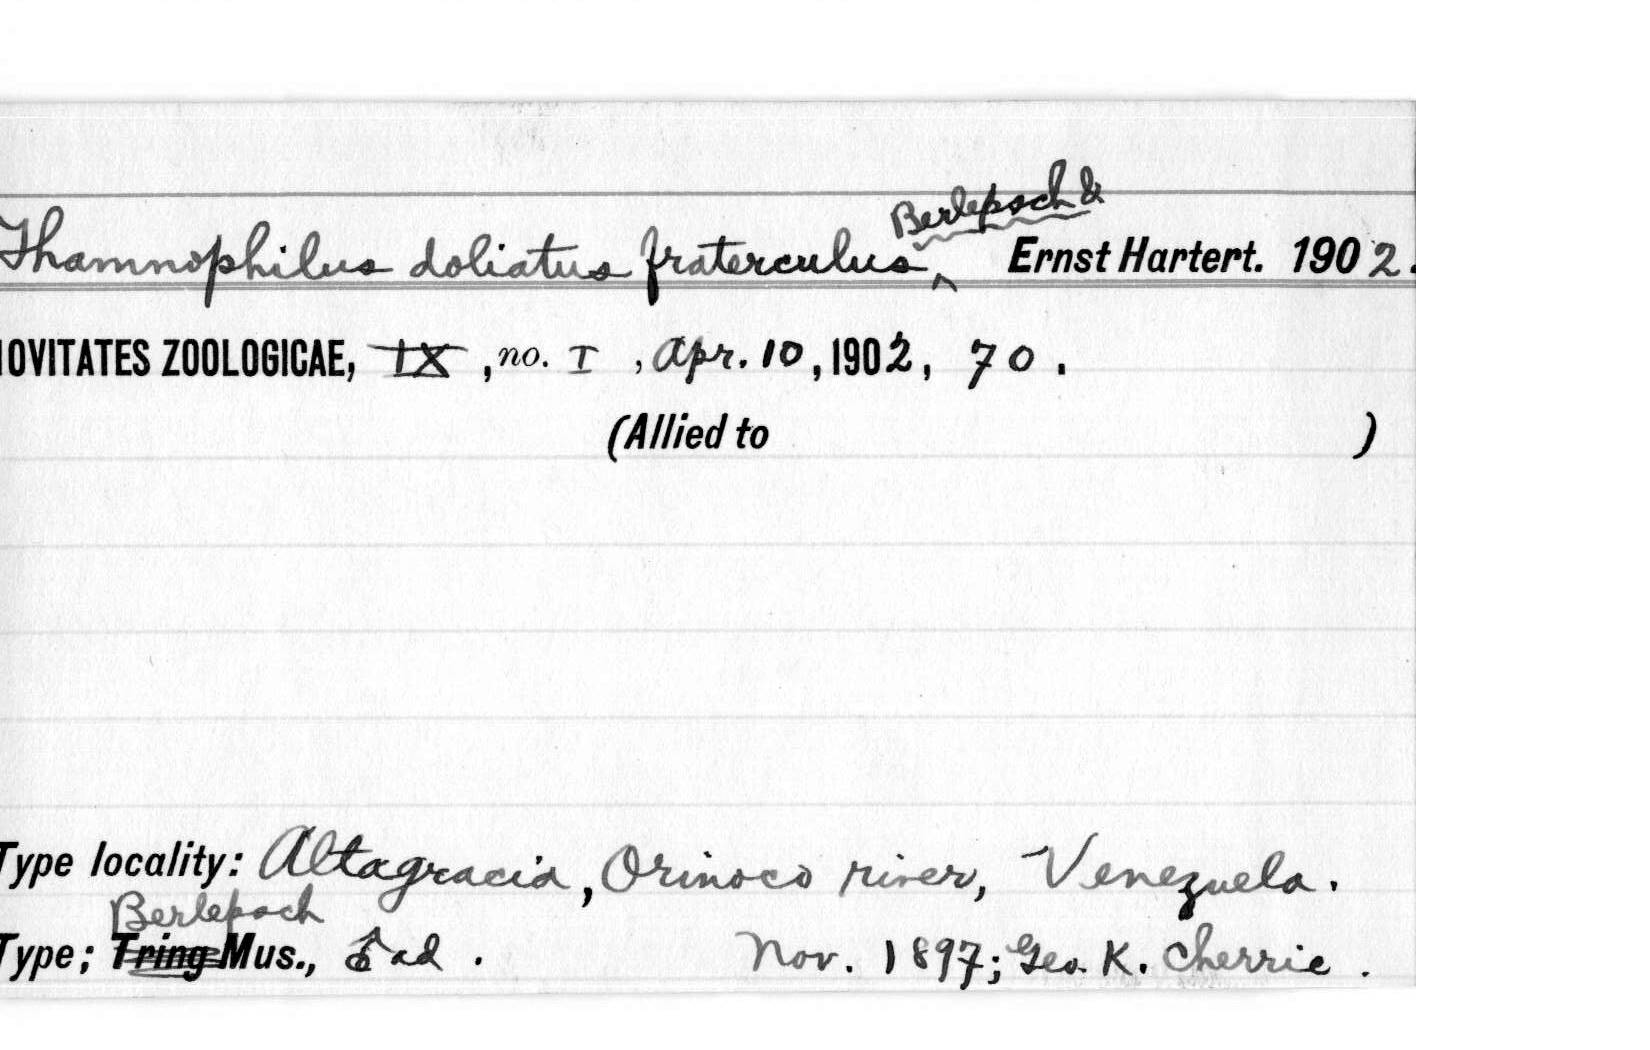 Thamnophilus doliatus fraterculus ‸ Berlepsch & Ernst Hartert. 1902.
OVITATES ZOOLOGICAE, IX, no. I, Apr. 10, 1902, 70.
(Allied to )
Type locality: Altagracia, Orinoco river, Venezuela.
Berlepsch
Type; Tring Mus., ♂ ad. Nov. 1897; Geo. K. Cherrie.